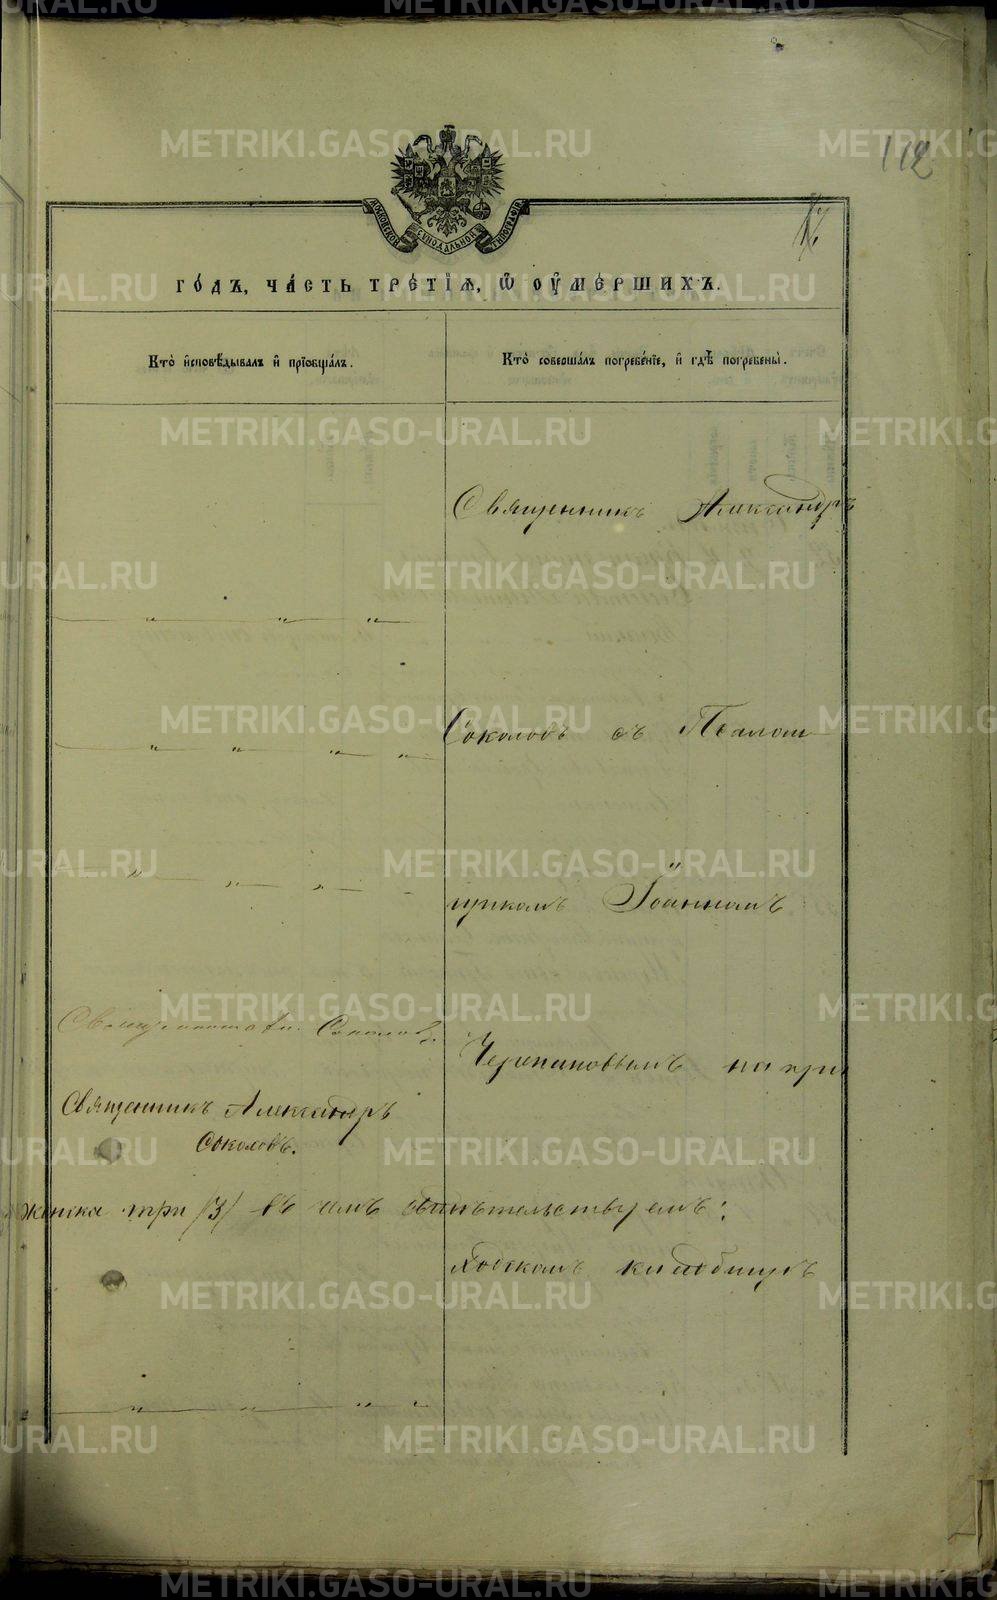 112
МОСКОВСКОЙ СѴНОДАЛЬНОЙ ТИПОГРАФІИ
го́дъ, ча́сть тре́тїѧ, ѡ҆ ᲂу҆ме́ршихъ.
Кто̀ и҆сповѣ́дывалъ и҆ прїѡбща́лъ.
Кто̀ соверша́лъ погребе́нїе, и҆ гдѣ̀ погребены̀.
Священникъ Александръ
— „ — „ — „ —
Соколовъ съ Псалом
— „ — „ — „ — „ —
— „ — „ — „ —
щикомъ Іоанномъ
Соколов.
Черепановымъ на при
Священникъ Александръ
Соколовъ.
женска три /3/ въ чемъ свидѣтельствуемъ:
ходскомъ кладбищѣ
— „ — „ — „ — „ —
METRIKI.GASO-URAL.RU